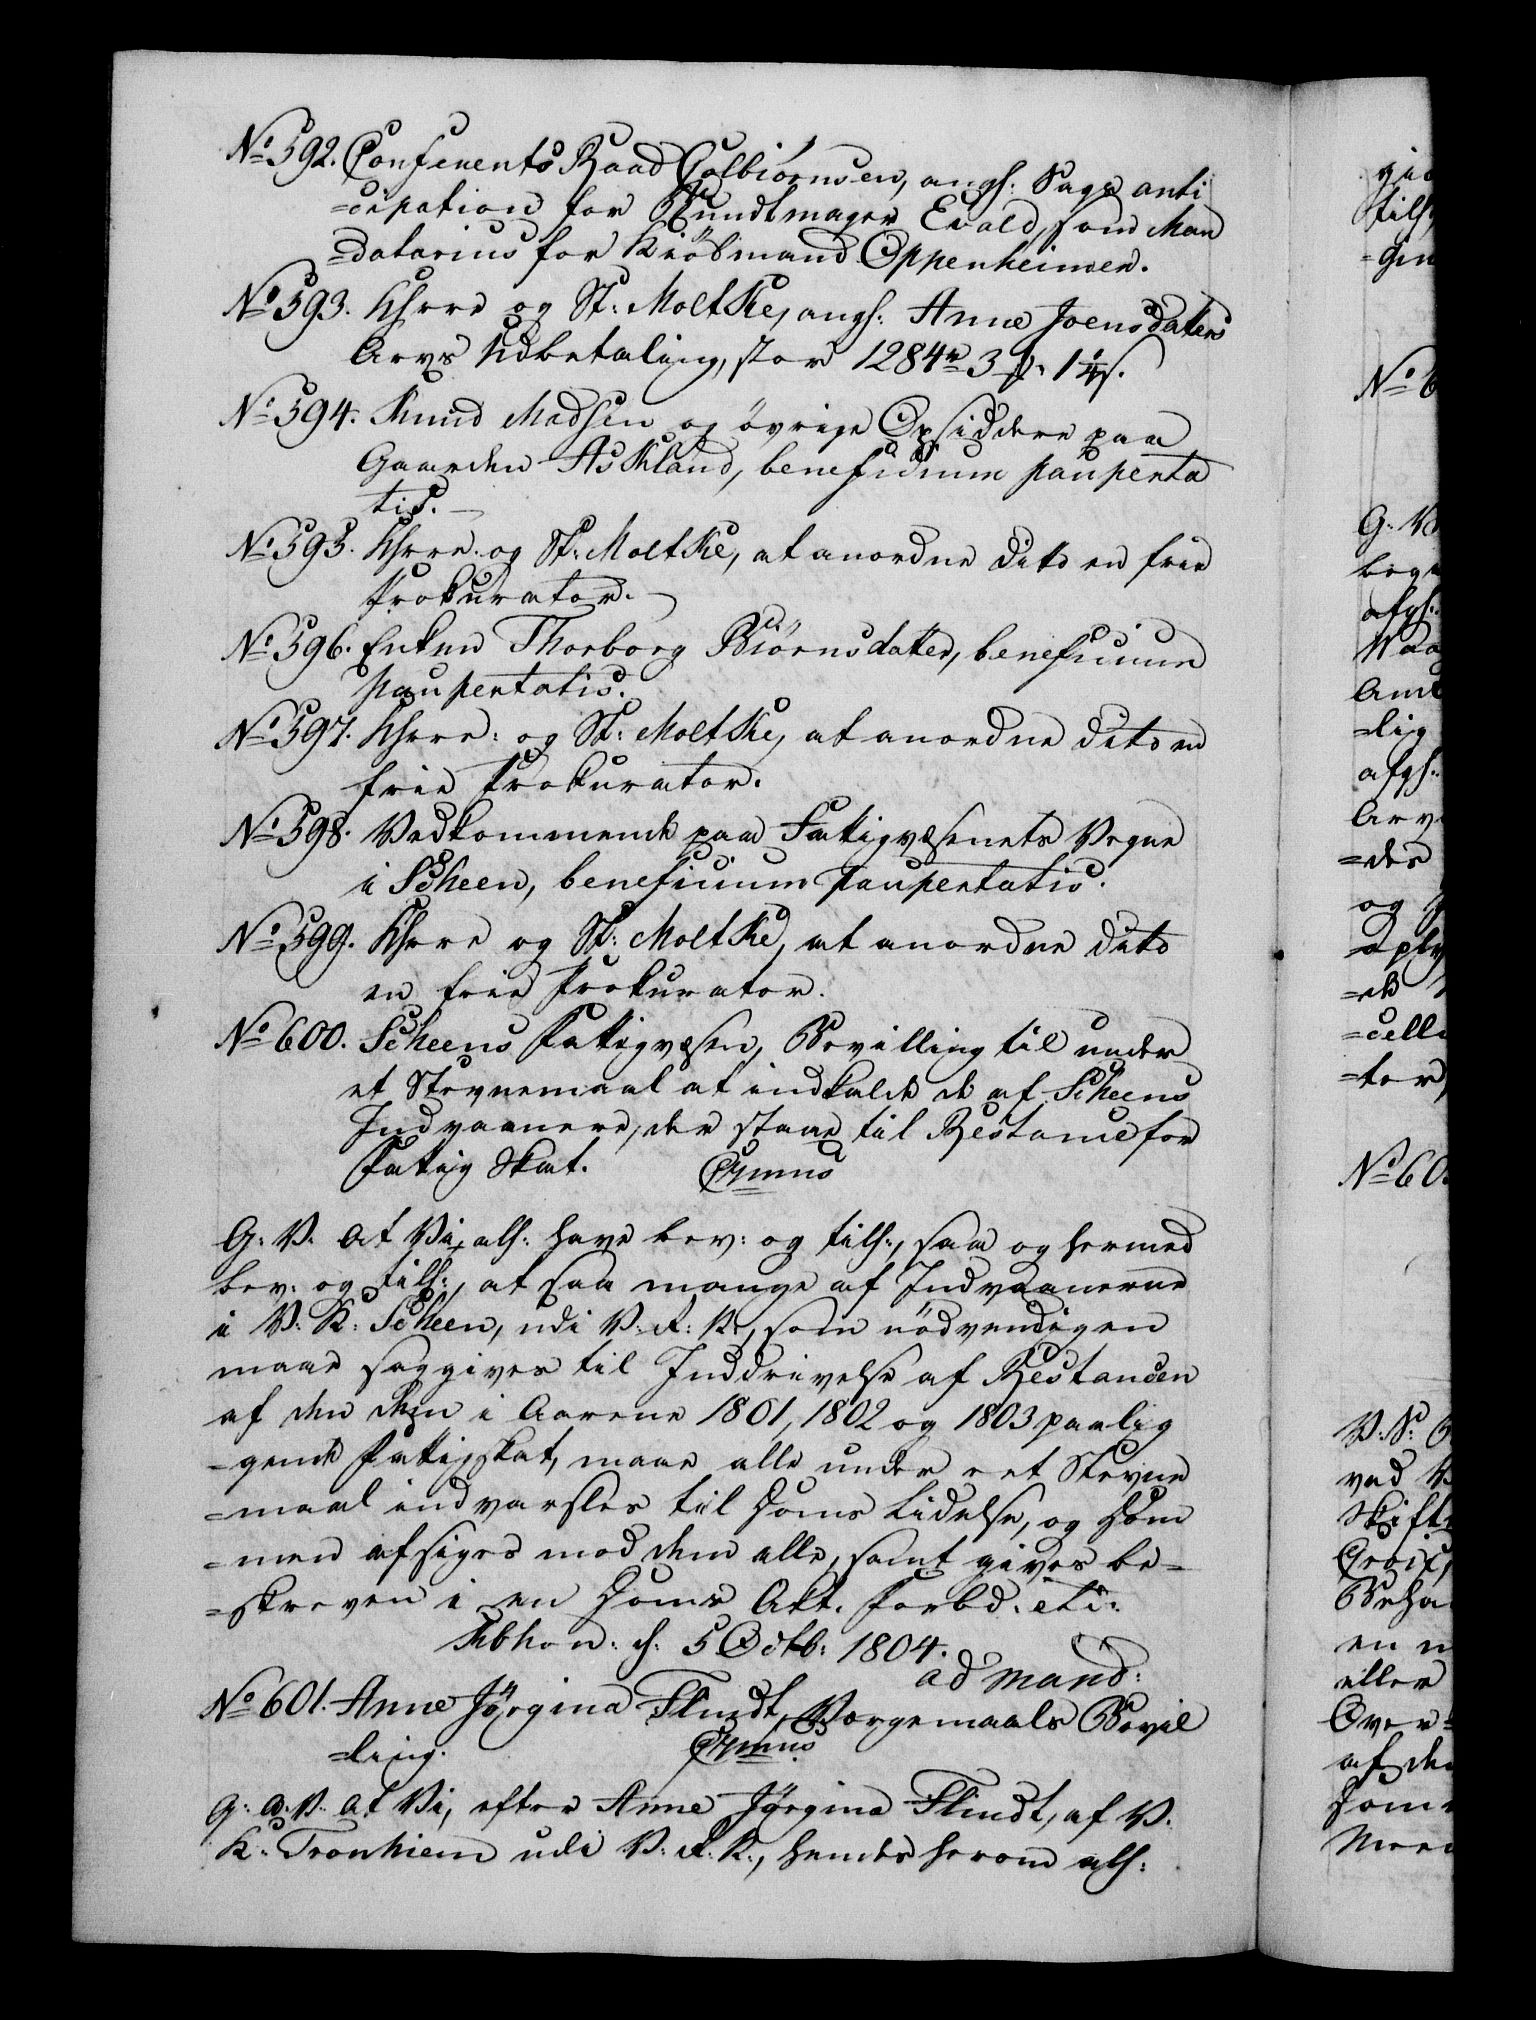 No 592. Conferents Raad Colbiørnsen, angl: Sags anti
=cipation for Bundtmager Evald, som Man
=datarius for Kiøbmand Oppenheimer.
No 593. Khrre og St: Moltke, angl: Anne Joensdatters
Arvs Udbetaling, stor 1284 rd 3 # 1 1/4 s.
No 594. Knud Madsen og øvrige Opsiddere paa
Gaarden Askland, beneficium pauperta
tis.
No 595. Khrre: og St: Moltke, at anordne dito en frie
Prokurator.
No 596. Enken Thorborg Biørnsdatter, beneficium
paupertatis.
No 597. Khrre: og St: Moltke, at anordne dito en
frie Prokurator.
No 598. Vedkommende paa Fattigvæsenets Vegne
i Scheen, beneficium paupertatis.
No 599. Khrre og St: Moltke, at anordne dito
en frie Prokurator.
No 600. Scheens Fattigvæsen, Bevilling til under
et Stevnemaal at indkalde de af Scheens
Indvaanere, der staae til Restance for
Fattig Skat.
G: V. At Vi, als: have bev: og tils:, saa og hermed
bev: og tils:, at saa mange af Indvaanerne
i V: K: Scheen, udi V: R: N:, som nødvendigen
maae søggives til Inddrivelse af Restancen
af den dem i Aarene 1801, 1802 og 1803 paalig
=gende Fattigskat, maae alle under eet Stevne
=maal indvarsles til Doms Lidelse, og Dom
=men afsiges mod dem alle, samt gives be=
=skreven i en Doms Akt. Forbd: etc:
Kbhvn: d: 5 Octb: 1804.
ad mand:
No 601. Anne Jørgina Flindt, Vergemaals Bevil
=ling.
G: a: V: At Vi, efter Anne Jørgina Flindt, af V.
K: Tronhiem udi V: R: N:, hendes herom als: